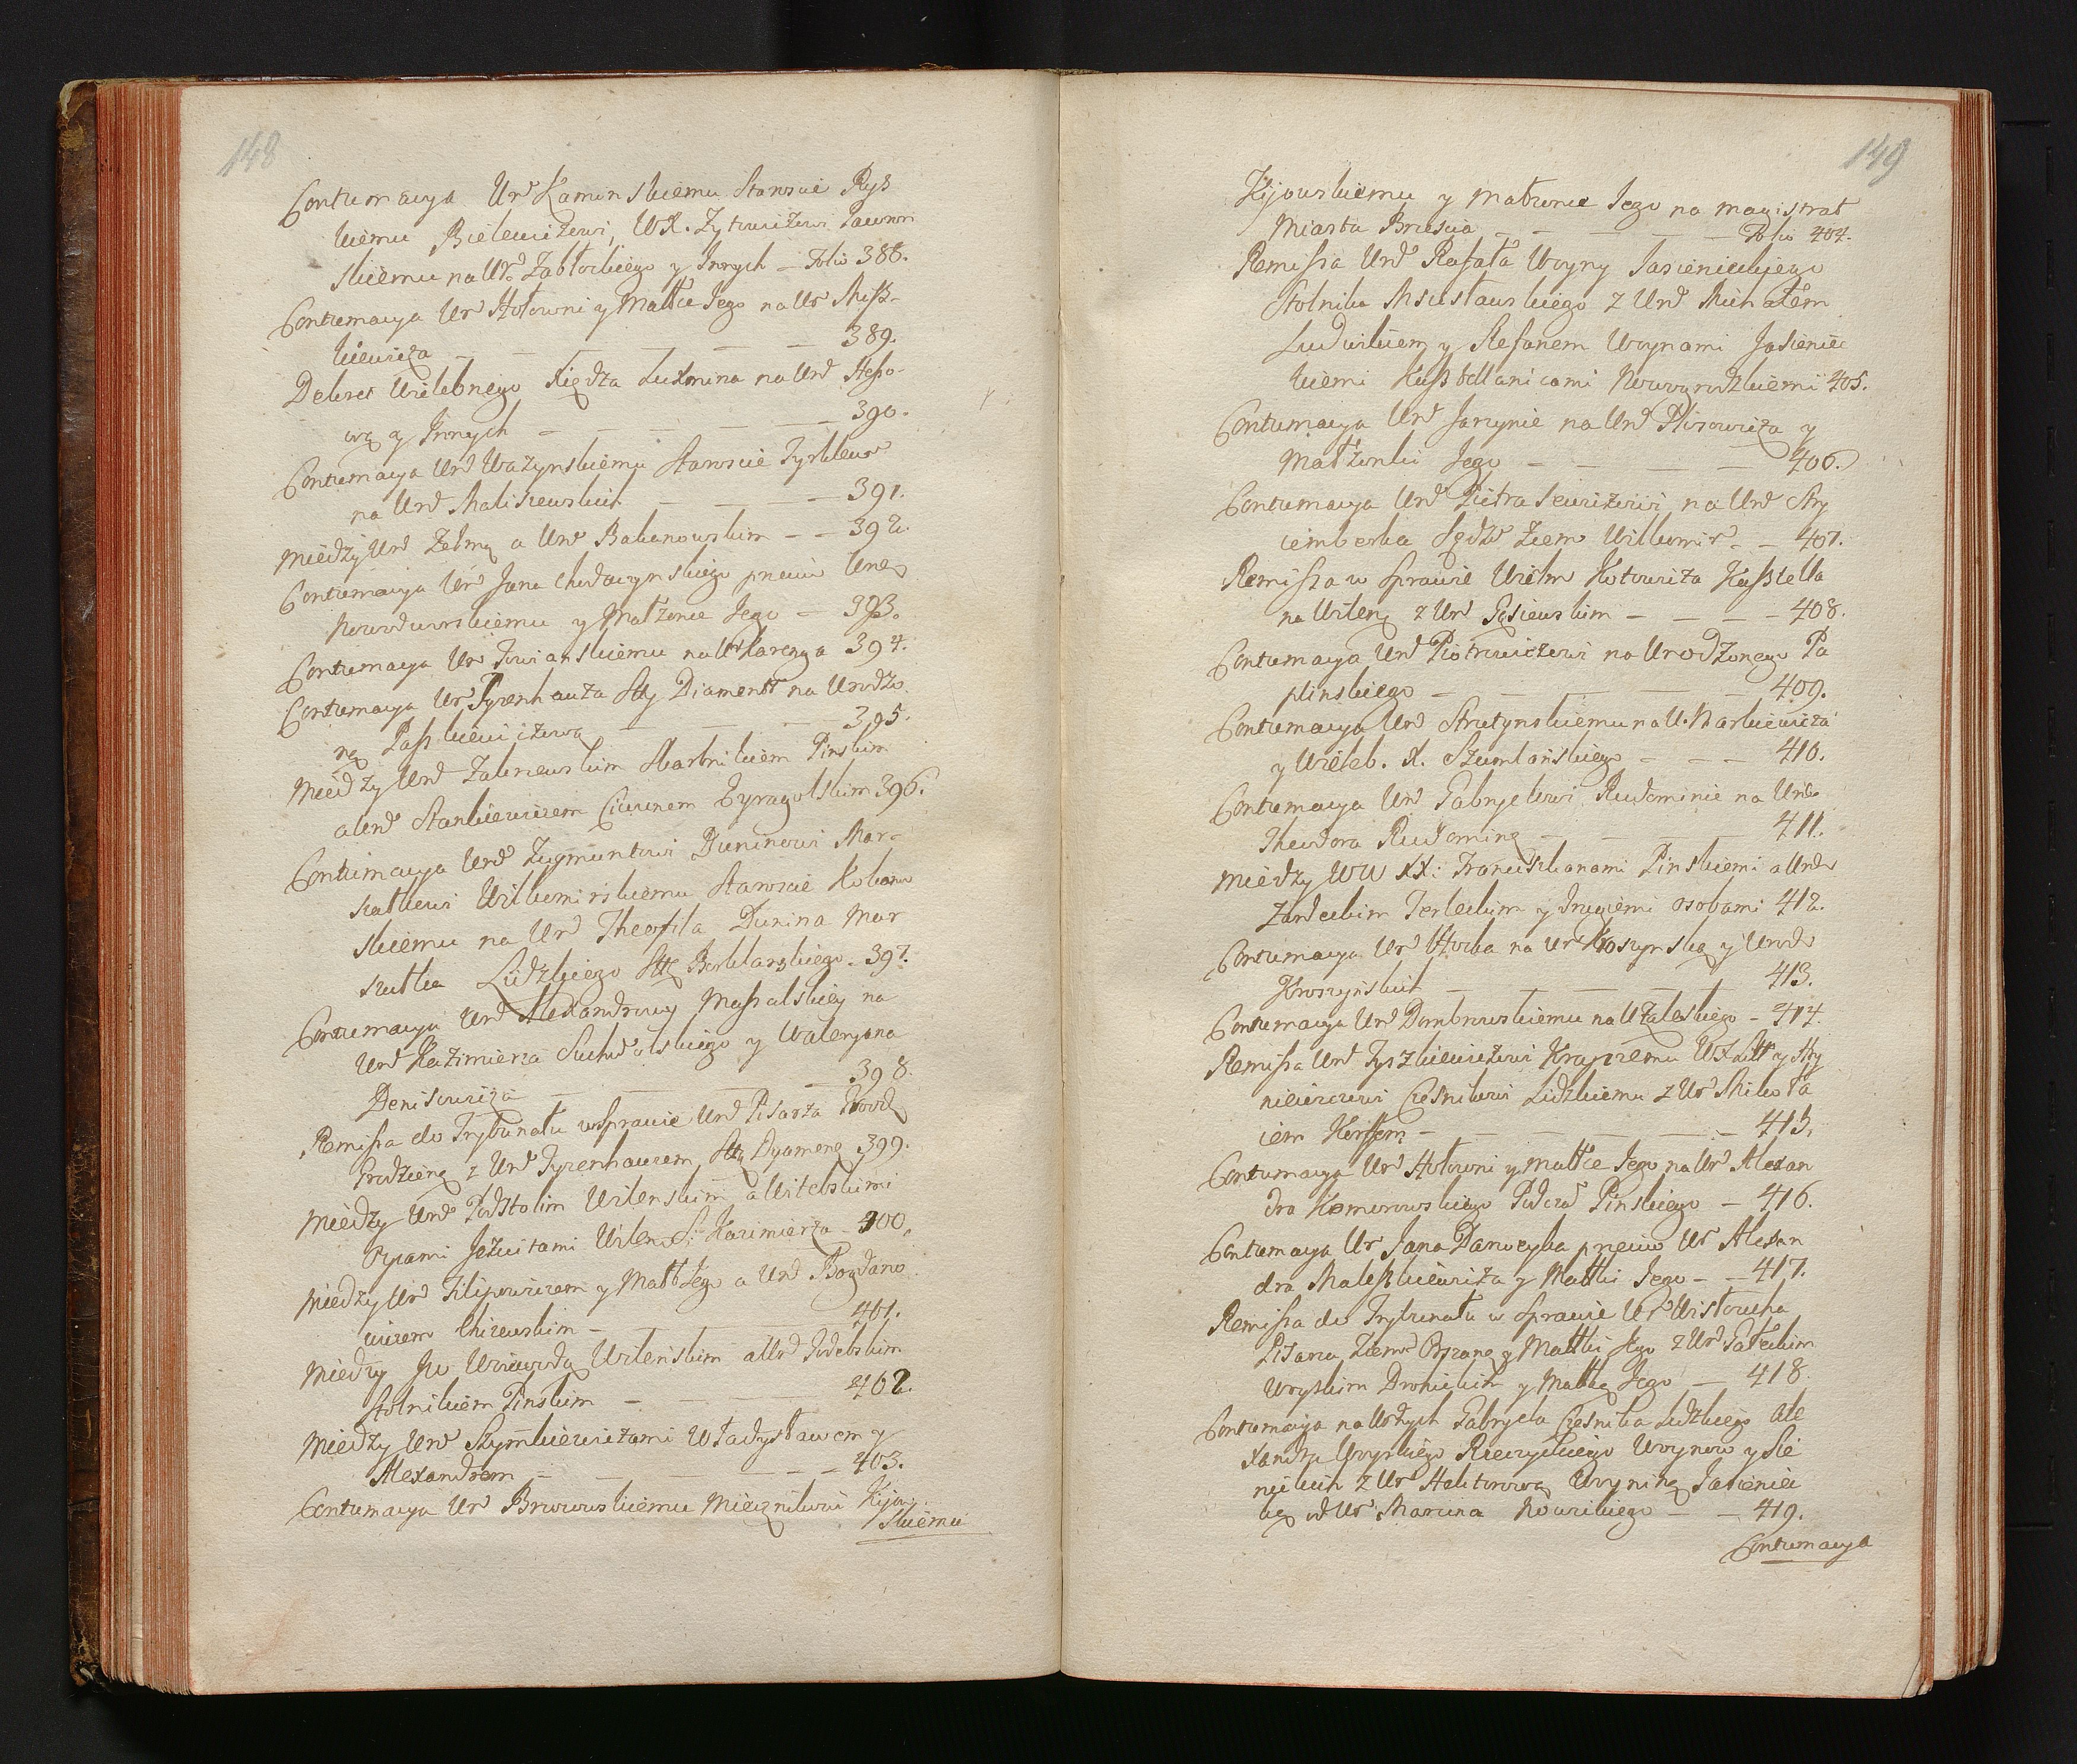 148
Contumacya Urd Kaminskiemu Staroscie Rys
kiemu Bielewiczowi, WX. Zytowiczowi Ławnw
skiemu na Urd Zabłockiego y Innych — Folio 388.
Contumacya Ur Hołowni y Małce Jego na Ur Misz-
kiewicza — 389.
Dekret Wielebnego Xiędza Luxmina na Urd Hesso-
wą y Innych — 390.
Contumacya Urd Wazynskiemu Staroscie Tyrklew
na Urd Maliszewskich — 391.
Między Urd Zełmą a Urd Bakanowskim — 392.
Contumacya Ur Jana Chodaczynskiego przeciw Urod
Nowodworskiemu y Małżonce Jego — 393.
Contumacya Ur Twianskiemu na Ur Harczya 394.
Contumacya Ur Tyzenhauza Stty Diament na Urodzo
ną Paszkiewiczową — 395.
Między Urd Zakrzewskim Skarbnikiem Pinskim
a Urd Stankiewiczem Ciwunem Eyragolskim 396.
Contumacya Urd Zygmuntowi Duninowi Mar-
szałkowi Wiłkomirskiemu Staroscie Kokanow
skiemu na Ur Theofila Dunina Mar
szałka Lidzkiego Stt Borklanskiego — 397.
Contumacya Urd Alexandrowey Massalskiey na
Urd Kazimierza Suchodolskiego y Waleryana
Denisowicza — 398.
Remissa do Trybunału w Sprawie Urd Pisarza Grodz
Grodzieng z Urd Tyzenhauzem Stty Dyameng 399.
Między Urd Podstolim Wilenskim a Witebskimi
Oycami Jezuitami Wilen: S: Kazimierza — 400.
Między Ur Filipowiczem y Małż Jego a Urd Bogdano
wiczem Chizewskim — 401.
Między Jw Woiewodą Wilenskim a Urd Godebskim
Stolnikiem Pinskim — 402.
Między Urd Szymkiewiczami Władysławem y
Alexandrem — 403.
Contumacya Ur Brzozowskiemu Miecznikowi Kijow
skiemu
149
Kijowskiemu y Małżonce Jego na Magistrat
Miasta Brzescia — Folio 404.
Remissa Urd Rafała Woyny Jasienickiego
Stolnika Mscisławskiego z Urd Michałem
Ludwikiem y Stefanem Woynami Jasienic
kiemi Kasztellanicami Nowogrodzkiemi 405.
Contumacya Urd Jarzynie na Urd Pisowicza y
Małżonki Jego — 406.
Contumacya Urd Pietraszewiczowi na Urd Stry
iemberka Sędz Ziem Wiłkomir — 407.
Remissa w Sprawie Wielm Kotowicza Kasztella
na Wileng z Urd Gąsiewskim — 408.
Contumacya Urd Piotrowiczowi na Urodzonego Pa
plinskiego — 409.
Contumacya Urd Strutynskiemu na U. Markiewicza
y Wieleb. X. Szumlańskiego — 410.
Contumacya Urd Gabryelowi Rudominie na Urd
Theodora Rudominę — 411.
Między WW XX: Franciszkanami Pinskiemi a Urd
Zardeckim Terleckim y Drugiemi osobami 412.
Contumacya Ur Horba na Ur Kroszynską y Urod
Kroszyńskich — 413.
Contumacya Urd Dombrowskiemu na U Zaleskiego — 414.
Remissa Urd Tyszkiewiczowi Krayczemu WX Litt y Hry
niewiczowi Czesnikowi Lidzkiemu z Ur Mikoła
iem Kerssem — 415.
Contumacya Urd Hołowni y Małce Jego na Ur Alexan
dra Komorowskiego Podczaszego Pinskiego — 416.
Contumacya Ur Jana Danoeyka przeciw Ur Alexan
dra Maleszkiewicza y Małki Jego — 417.
Remissa do Trybunału w Sprawie Ur Wistoucha
Pisarza Ziem Orszan y Małki Jego z Ur Gałeckim
Woyskim Drohickim y Małką Jego — 418.
Contumacya na Urdzych Gabryela Czesnika Lidzkiego Ale
xandra Woyskiego Rzeczyckiego Woynow y Sie
nickich z Ur Haktorową Woyniną Jasienic
ką od Ur Marcina Nowickiego — 419.
Contumacya